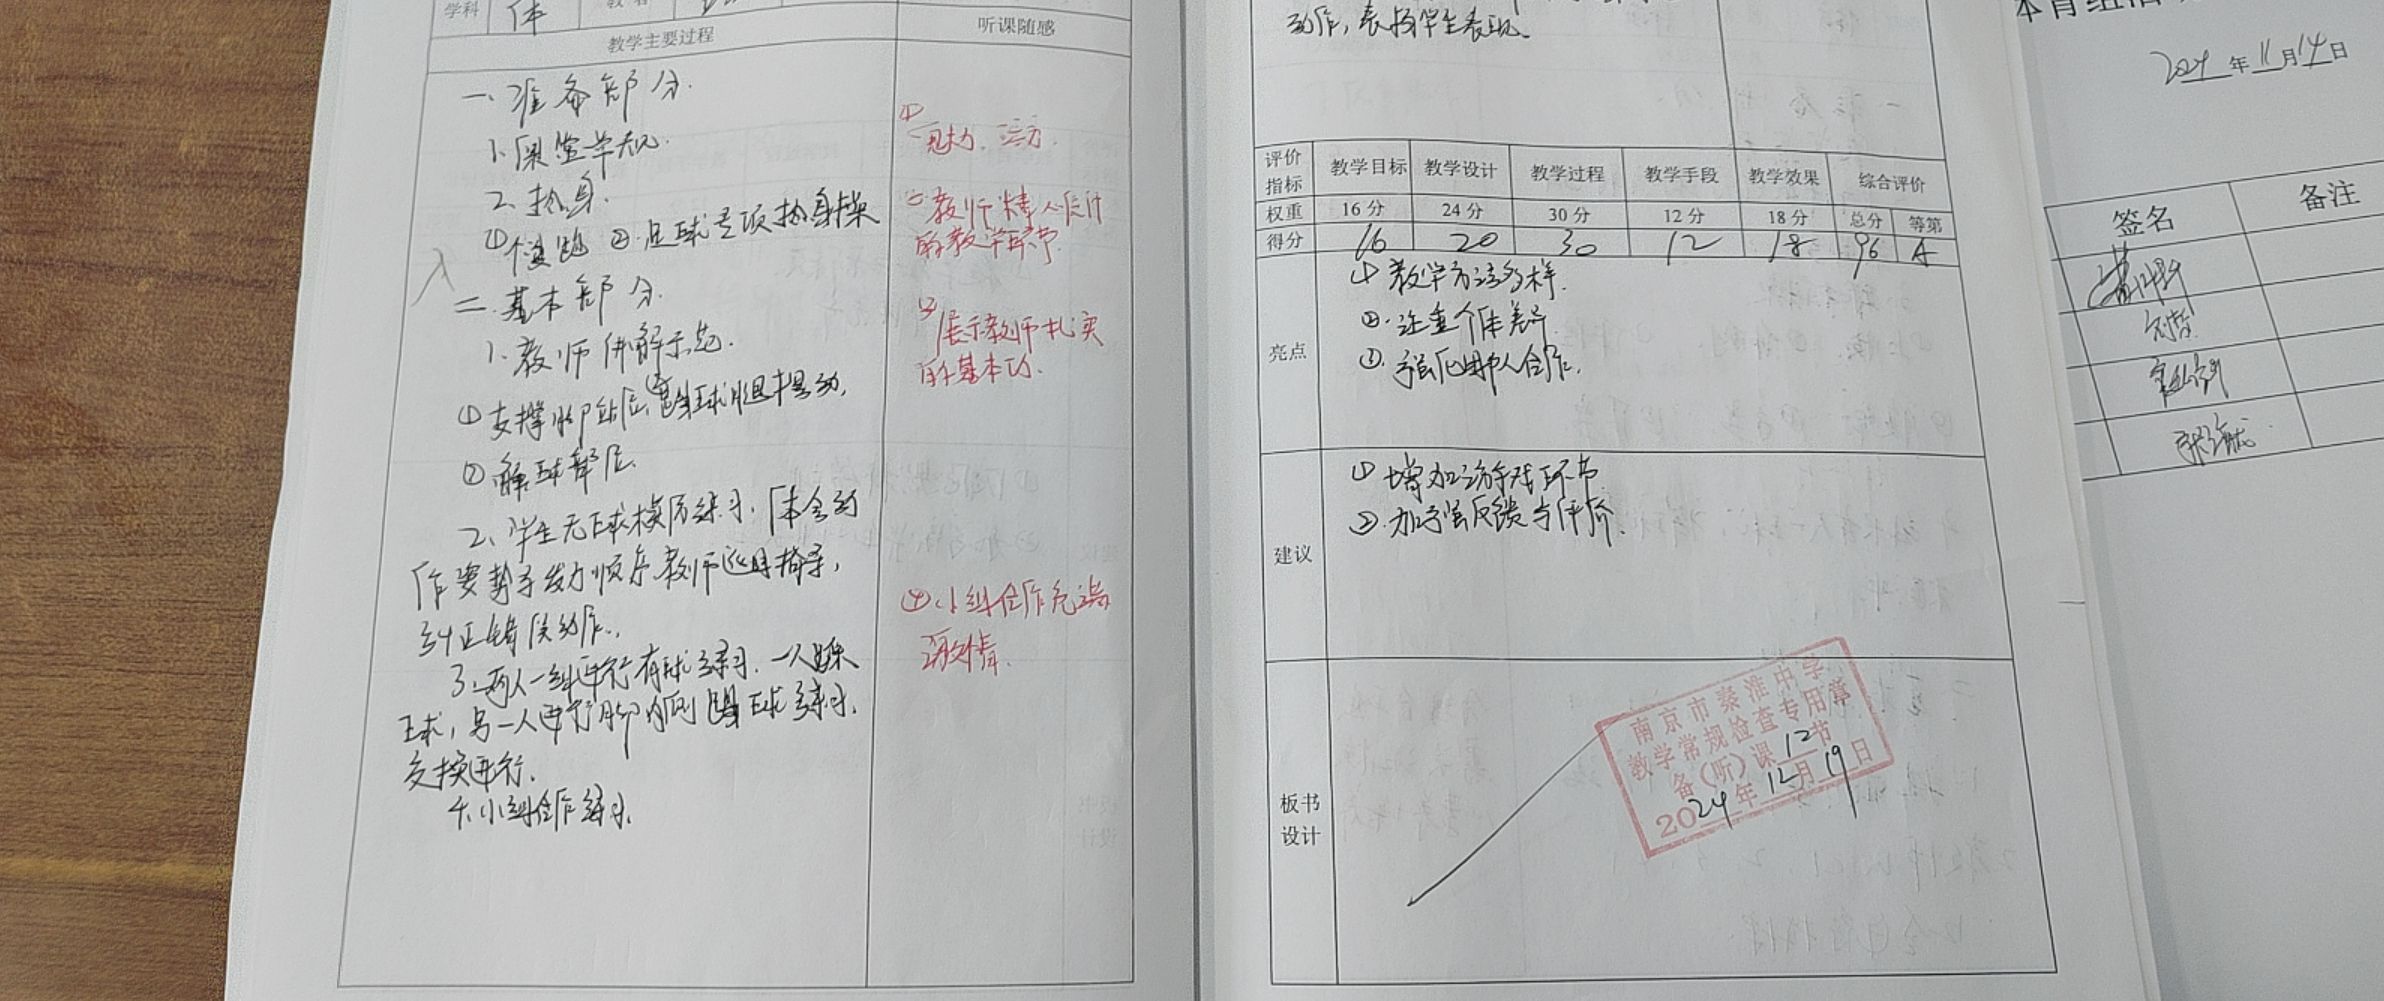 学科 体
教学主要过程 听课随感
一、准备部分.
1、课堂常规.
2、热身.
①慢跑 ②足球专项热身操
二、基本部分.
1、教师讲解示范.
①支撑脚站位,踢球腿摆动,
②触球部位.
2、学生无球模仿练习,体会动
作要领与发力顺序,教师巡回指导,
纠正错误动作.
3、两人一组进行有球练习,一人踩
球,另一人进行脚内侧踢球练习,
交换进行.
4、小组合作练习.
①
②教师精心设计
的教学环节.
③展示教师扎实
的基本功.
④小组合作充满
激情.
动作,表扬学生表现.
评价指标 教学目标 教学设计 教学过程 教学手段 教学效果 综合评价
权重 16分 24分 30分 12分 18分 总分 等第
得分 16 20 30 12 18 96 A
亮点
①教学方法多样.
②注重个体差异
③强化团队合作.
建议
①增加游戏环节
②加强反馈与评价.
板书
设计
南京市秦淮中学
教学常规检查专用章
备(听)课12节
2024年12月19日
2024年11月14日
签名 备注